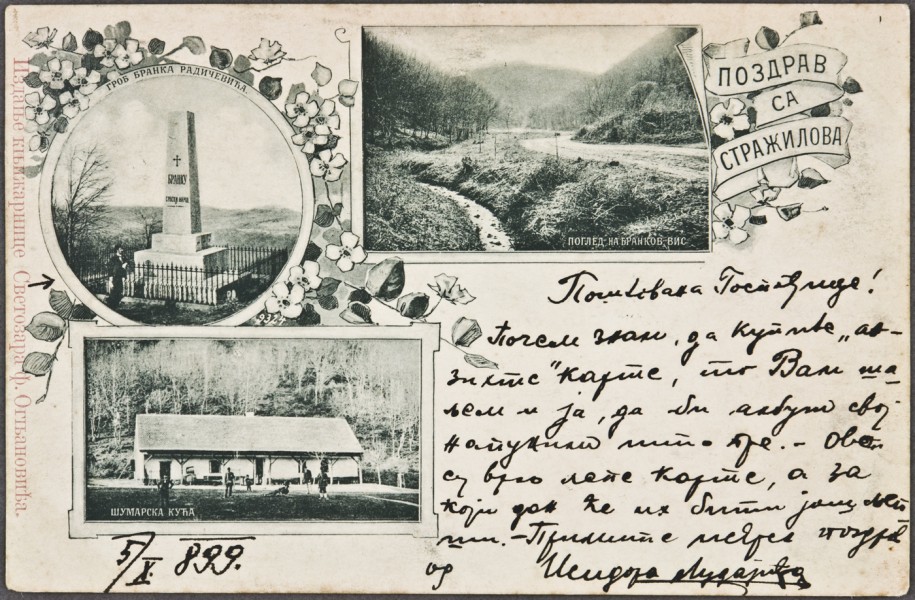 Издање књижарнице Светозара Ф. Огњановића.
ГРОБ БРАНКА РАДИЧЕВИЋА.
БРАНКУ
СРПСКИ НАРОД
ПОГЛЕД НА БРАНКОВ ВИС
ПОЗДРАВ
СА
СТРАЖИЛОВА
ШУМАРСКА КУЋА
Поштована Госпођице!
Почем знам, да купите „ан-
зихтс" карте, то Вам ша-
љем и ја, да би албум свој
напунили што пре. – Овет
су врло лепе карте, а за
који дан ће их бити још леп
ши. – Примите искрен поздрав
од Исидора
5/X. 899.